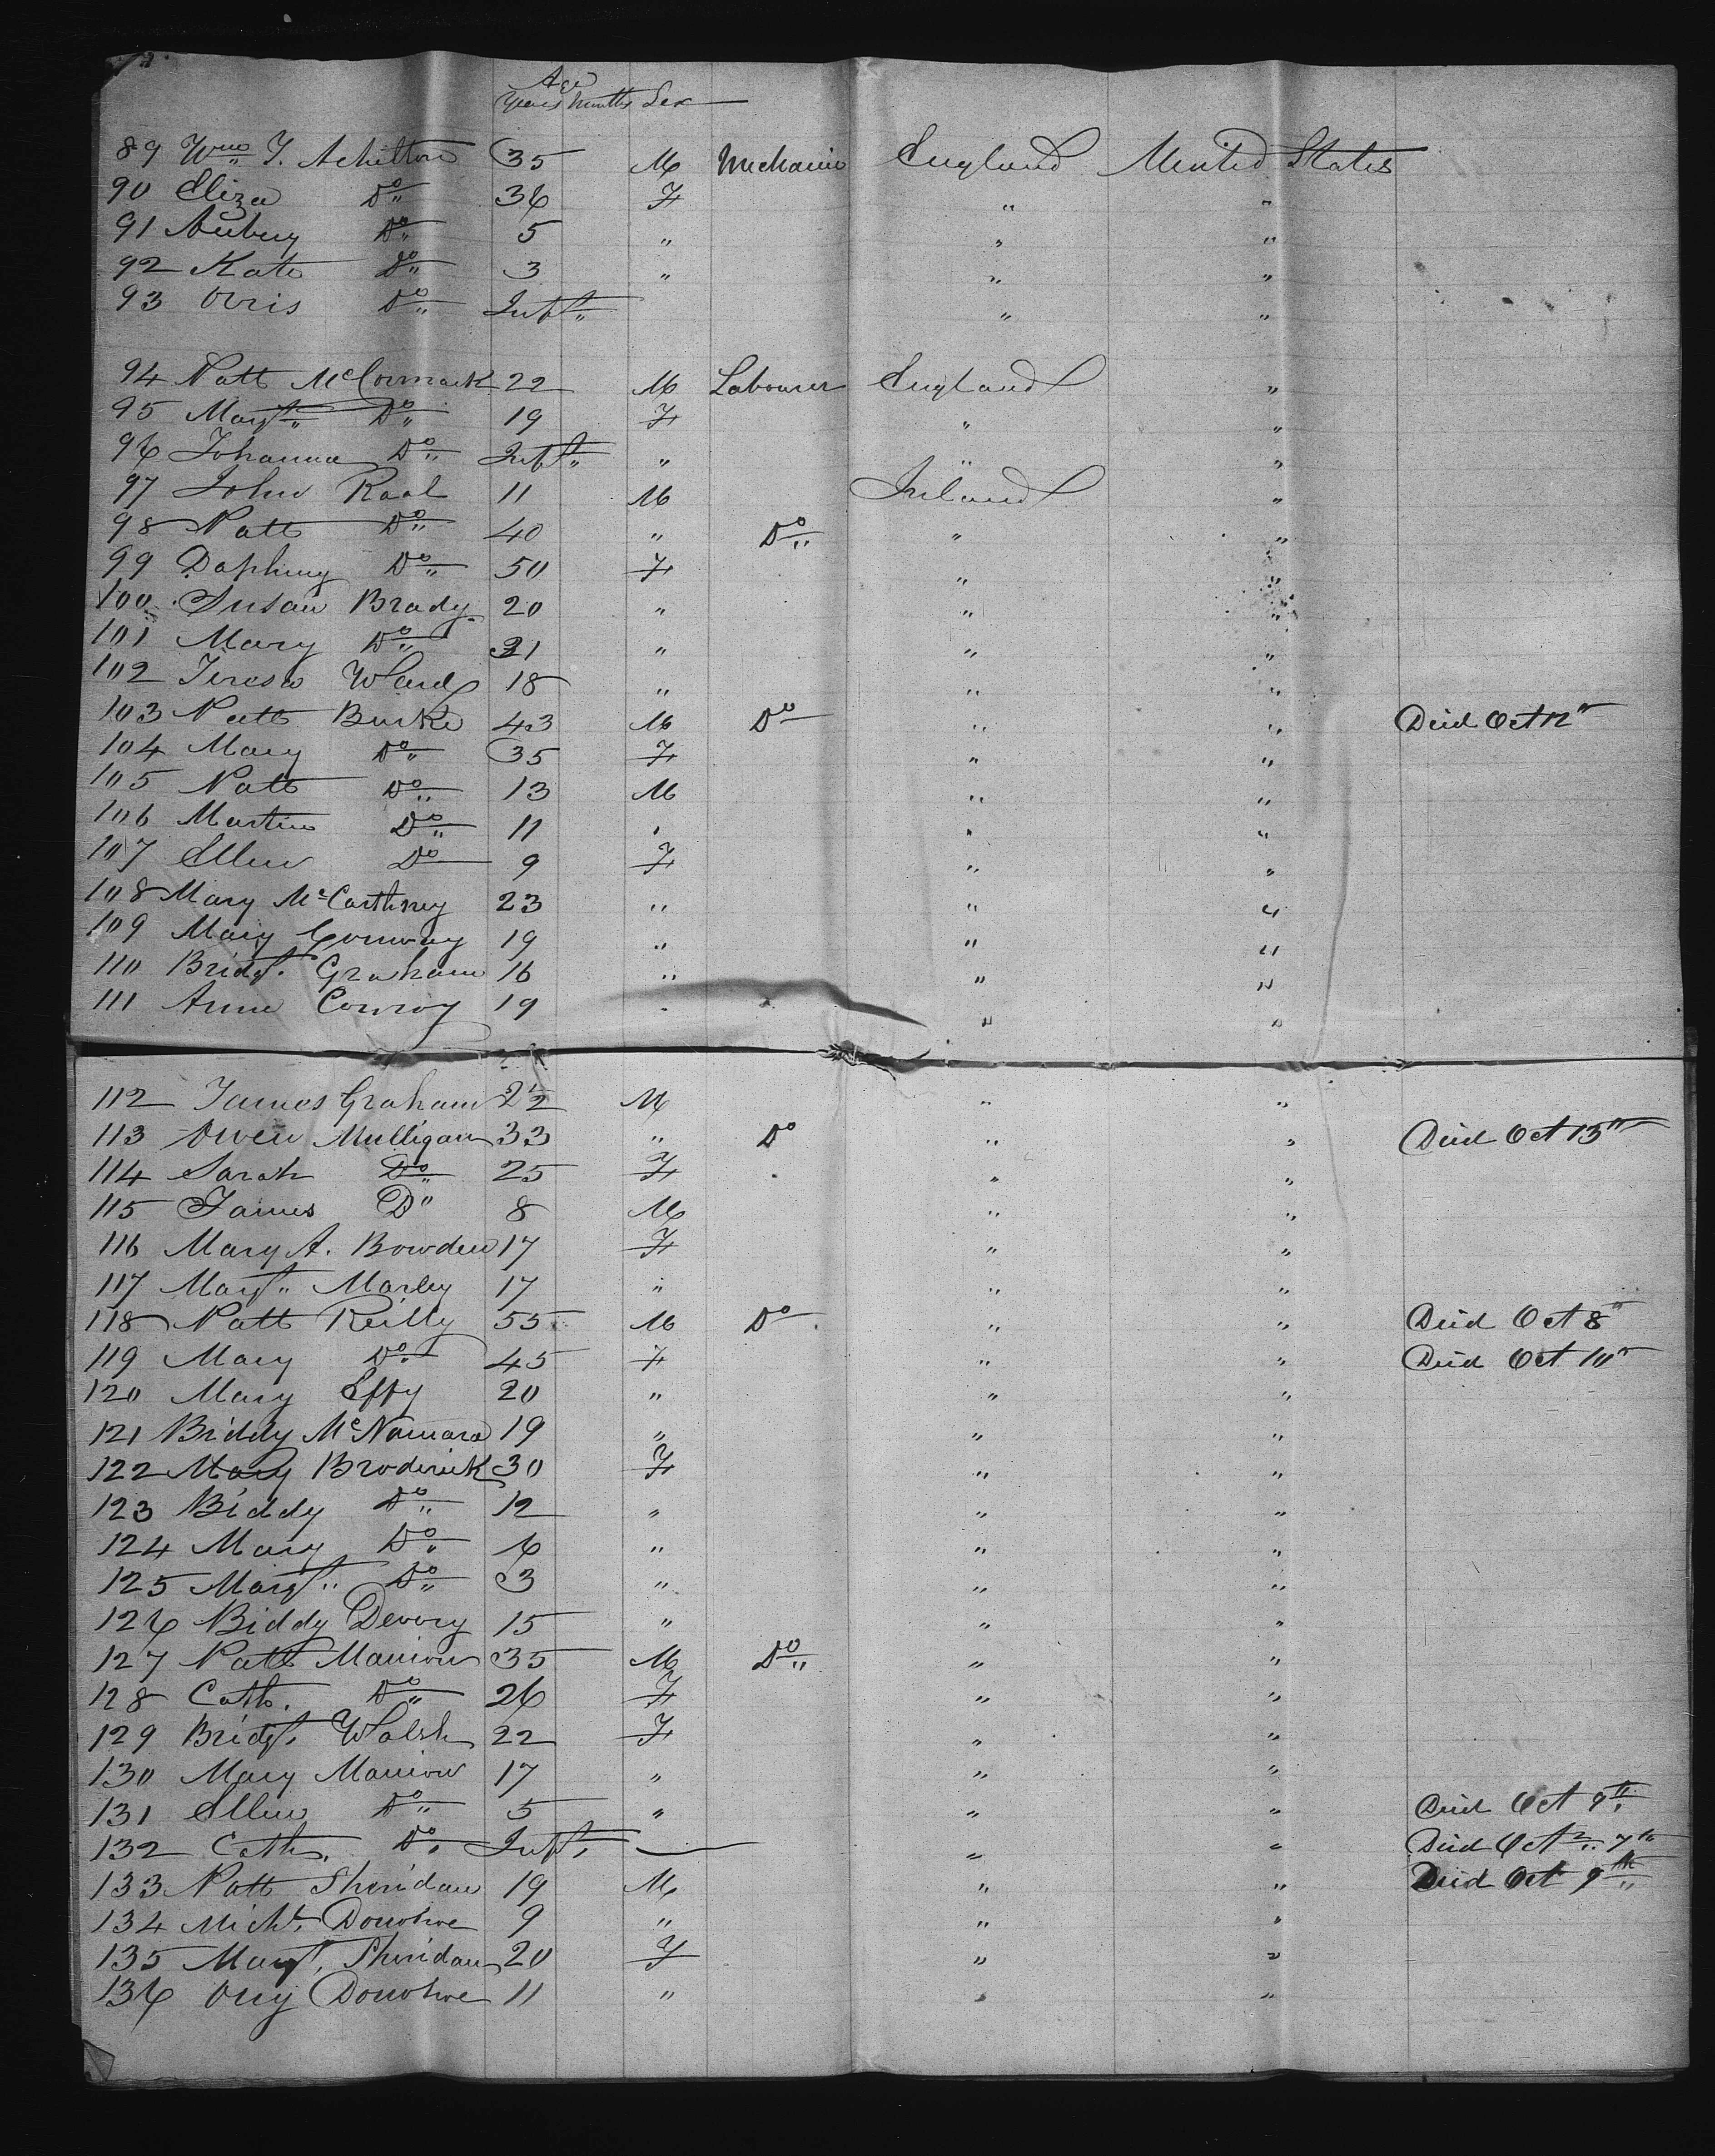 Age
Years Months Sex
89 Wm T. Achilton 35 M Mechanic England United States
90 Eliza Do 36 F " "
91 Aubery Do 5 " " "
92 Kate Do 3 " " "
93 Orris Do Inft " "
94 Patt McCormack 22 M Labourer England "
95 Margt Do 19 F " "
96 Johanna Do Inft " " "
97 John Raal 11 M Ireland "
98 Patt Do 40 " Do " "
99 Daphny Do 50 F " "
100 Susan Brady 20 " " "
101 Mary Do 21 " " "
102 Teresa Ward 18 " " "
103 Patt Burke 43 M Do " " Died Oct 12"
104 Mary Do 35 F " "
105 Patt Do 13 M " "
106 Martin Do 11 " " "
107 Ellen Do 9 F " "
108 Mary McCarthney 23 " " "
109 Mary Conway 19 " " "
110 Bridgt. Graham 16 " " "
111 Anne Conroy 19 " " "
112 James Graham 2½ M " "
113 Owen Mulligan 33 " Do " " Died Oct 13"
114 Sarah Do 25 F " "
115 James Do 8 M " "
116 Mary A. Bowden 17 F " "
117 Margt. Marley 17 " " "
118 Patt Reilly 55 M Do " " Died Oct 8"
119 Mary Do 45 F " " Died Oct 10"
120 Mary Effy 20 " " "
121 Biddy McNamara 19 " " "
122 Mary Broderick 30 F " "
123 Biddy Do 12 " " "
124 Mary Do 6 " " "
125 Margt. Do 3 " " "
126 Biddy Devory 15 " " "
127 Patt Manion 35 M Do " "
128 Cath. Do 26 F " "
129 Bridgt. Walsh 22 F " "
130 Mary Manion 17 " " "
131 Ellen Do 5 " " " Died Oct 9th
132 Cath. Do. Inft. " " Died Oct 7th
133 Patt Sheridan 19 M " " Died Oct 9th
134 Michl. Donohoe 9 " " "
135 Margt. Sheridan 20 F " "
136 Ony Donohoe 11 " " "